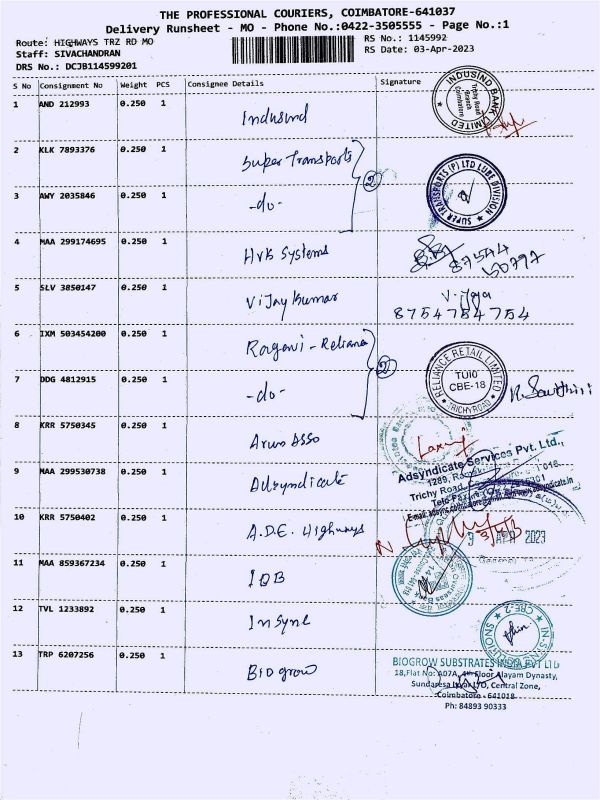 THE PROFESSIONAL COURIERS, COIMBATORE-641037
Delivery Runsheet - MO - Phone No.:0422-3505555 - Page No.:1
Route: HIGHWAYS TRZ RD MO
RS No.: 1145992
Staff: SIVACHANDRAN
RS Date: 03-Apr-2023
DRS No.: DCJB114599201
S No Consignment No Weight PCS Consignee Details Signature
1 AND 212993 0.250 1 Indusind
INDUSIND BANK LIMITED
Trichy Road Branch Coimbatore
2 KLK 7893376 0.250 1 Super Transports
3 AWY 2035846 0.250 1 -do-
2
SUPER TRANSPORTS (P) LTD LUBE DIVISION
4 MAA 299174695 0.250 1 Hvk Systems
87544
50797
5 SLV 3850147 0.250 1 Vijay Kumar
V. Jaya
8754754754
6 IXM 503454200 0.250 1 Ragavi - Reliance
7 DDG 4812915 0.250 1 -do-
2
RELIANCE RETAIL LIMITED
TUI0
CBE-18
TRICHY ROAD
8 KRR 5750345 0.250 1 Arun Asso
Laxmi
9 MAA 299530738 0.250 1 Adsyndicate
Adsyndicate Services Pvt. Ltd.,
10 KRR 5750402 0.250 1 A.D.E. Highways
3 APR 2023
11 MAA 859367234 0.250 1 IOB
12 TVL 1233892 0.250 1 Insync
CBE-2
13 TRP 6207256 0.250 1 Biogrow
BIOGROW SUBSTRATES INDIA PVT LTD
18,Flat No: A07A, 4th Floor Alayam Dynasty,
Sundaresa Iyer L/O, Central Zone,
Coimbatore - 641018
Ph: 84893 90333